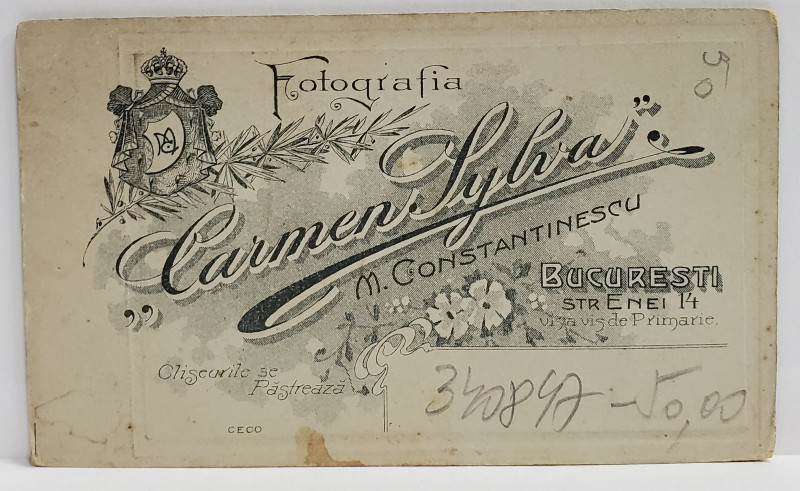 Fotografia
„Carmen Sylva”
M. CONSTANTINESCU
BUCURESTI
STR ENEI 14
viza vis de Primarie.
Clișeurile se
Păstrează
CECO
50
340847 - 50,00